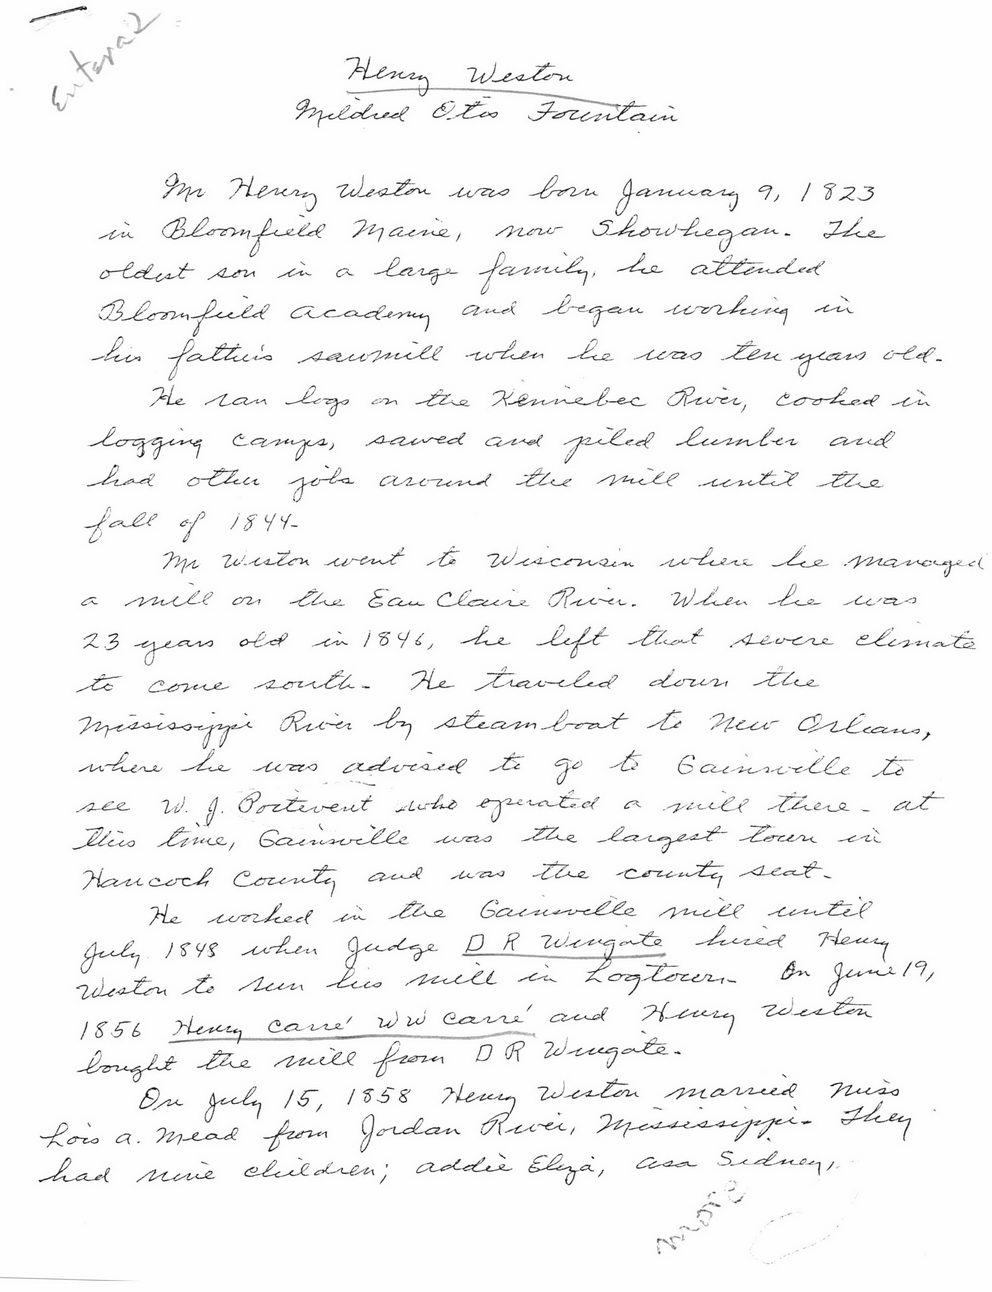 Entered
Henry Weston
Mildred Otis Fountain
Mr Henry Weston was born January 9, 1823
in Bloomfield Maine, now Showhegan. The
oldest son in a large family, he attended
Bloomfield Academy and began working in
his father's sawmill when he was ten years old.
He ran logs on the Kennebec River, cooked in
logging camps, sawed and piled lumber and
had other jobs around the mill until the
fall of 1844.
Mr Weston went to Wisconsin where he managed
a mill on the Eau Claire River. When he was
23 years old in 1846, he left that severe climate
to come south. He traveled down the
Mississippi River by steamboat to New Orleans,
where he was advised to go to Gainsville to
see W. J. Poitevent who operated a mill there. At
this time, Gainsville was the largest town in
Hancock County and was the county seat.
He worked in the Gainsville mill until
July 1848 when Judge D R Wingate hired Henry
Weston to run his mill in Logtown. On June 19,
1856 Henry Carré W W Carré and Henry Weston
bought the mill from D R Wingate.
On July 15, 1858 Henry Weston married Miss
Lois A. Mead from Jordan River, Mississippi. They
had nine children; Addie Eliza, Asa Sidney,
more